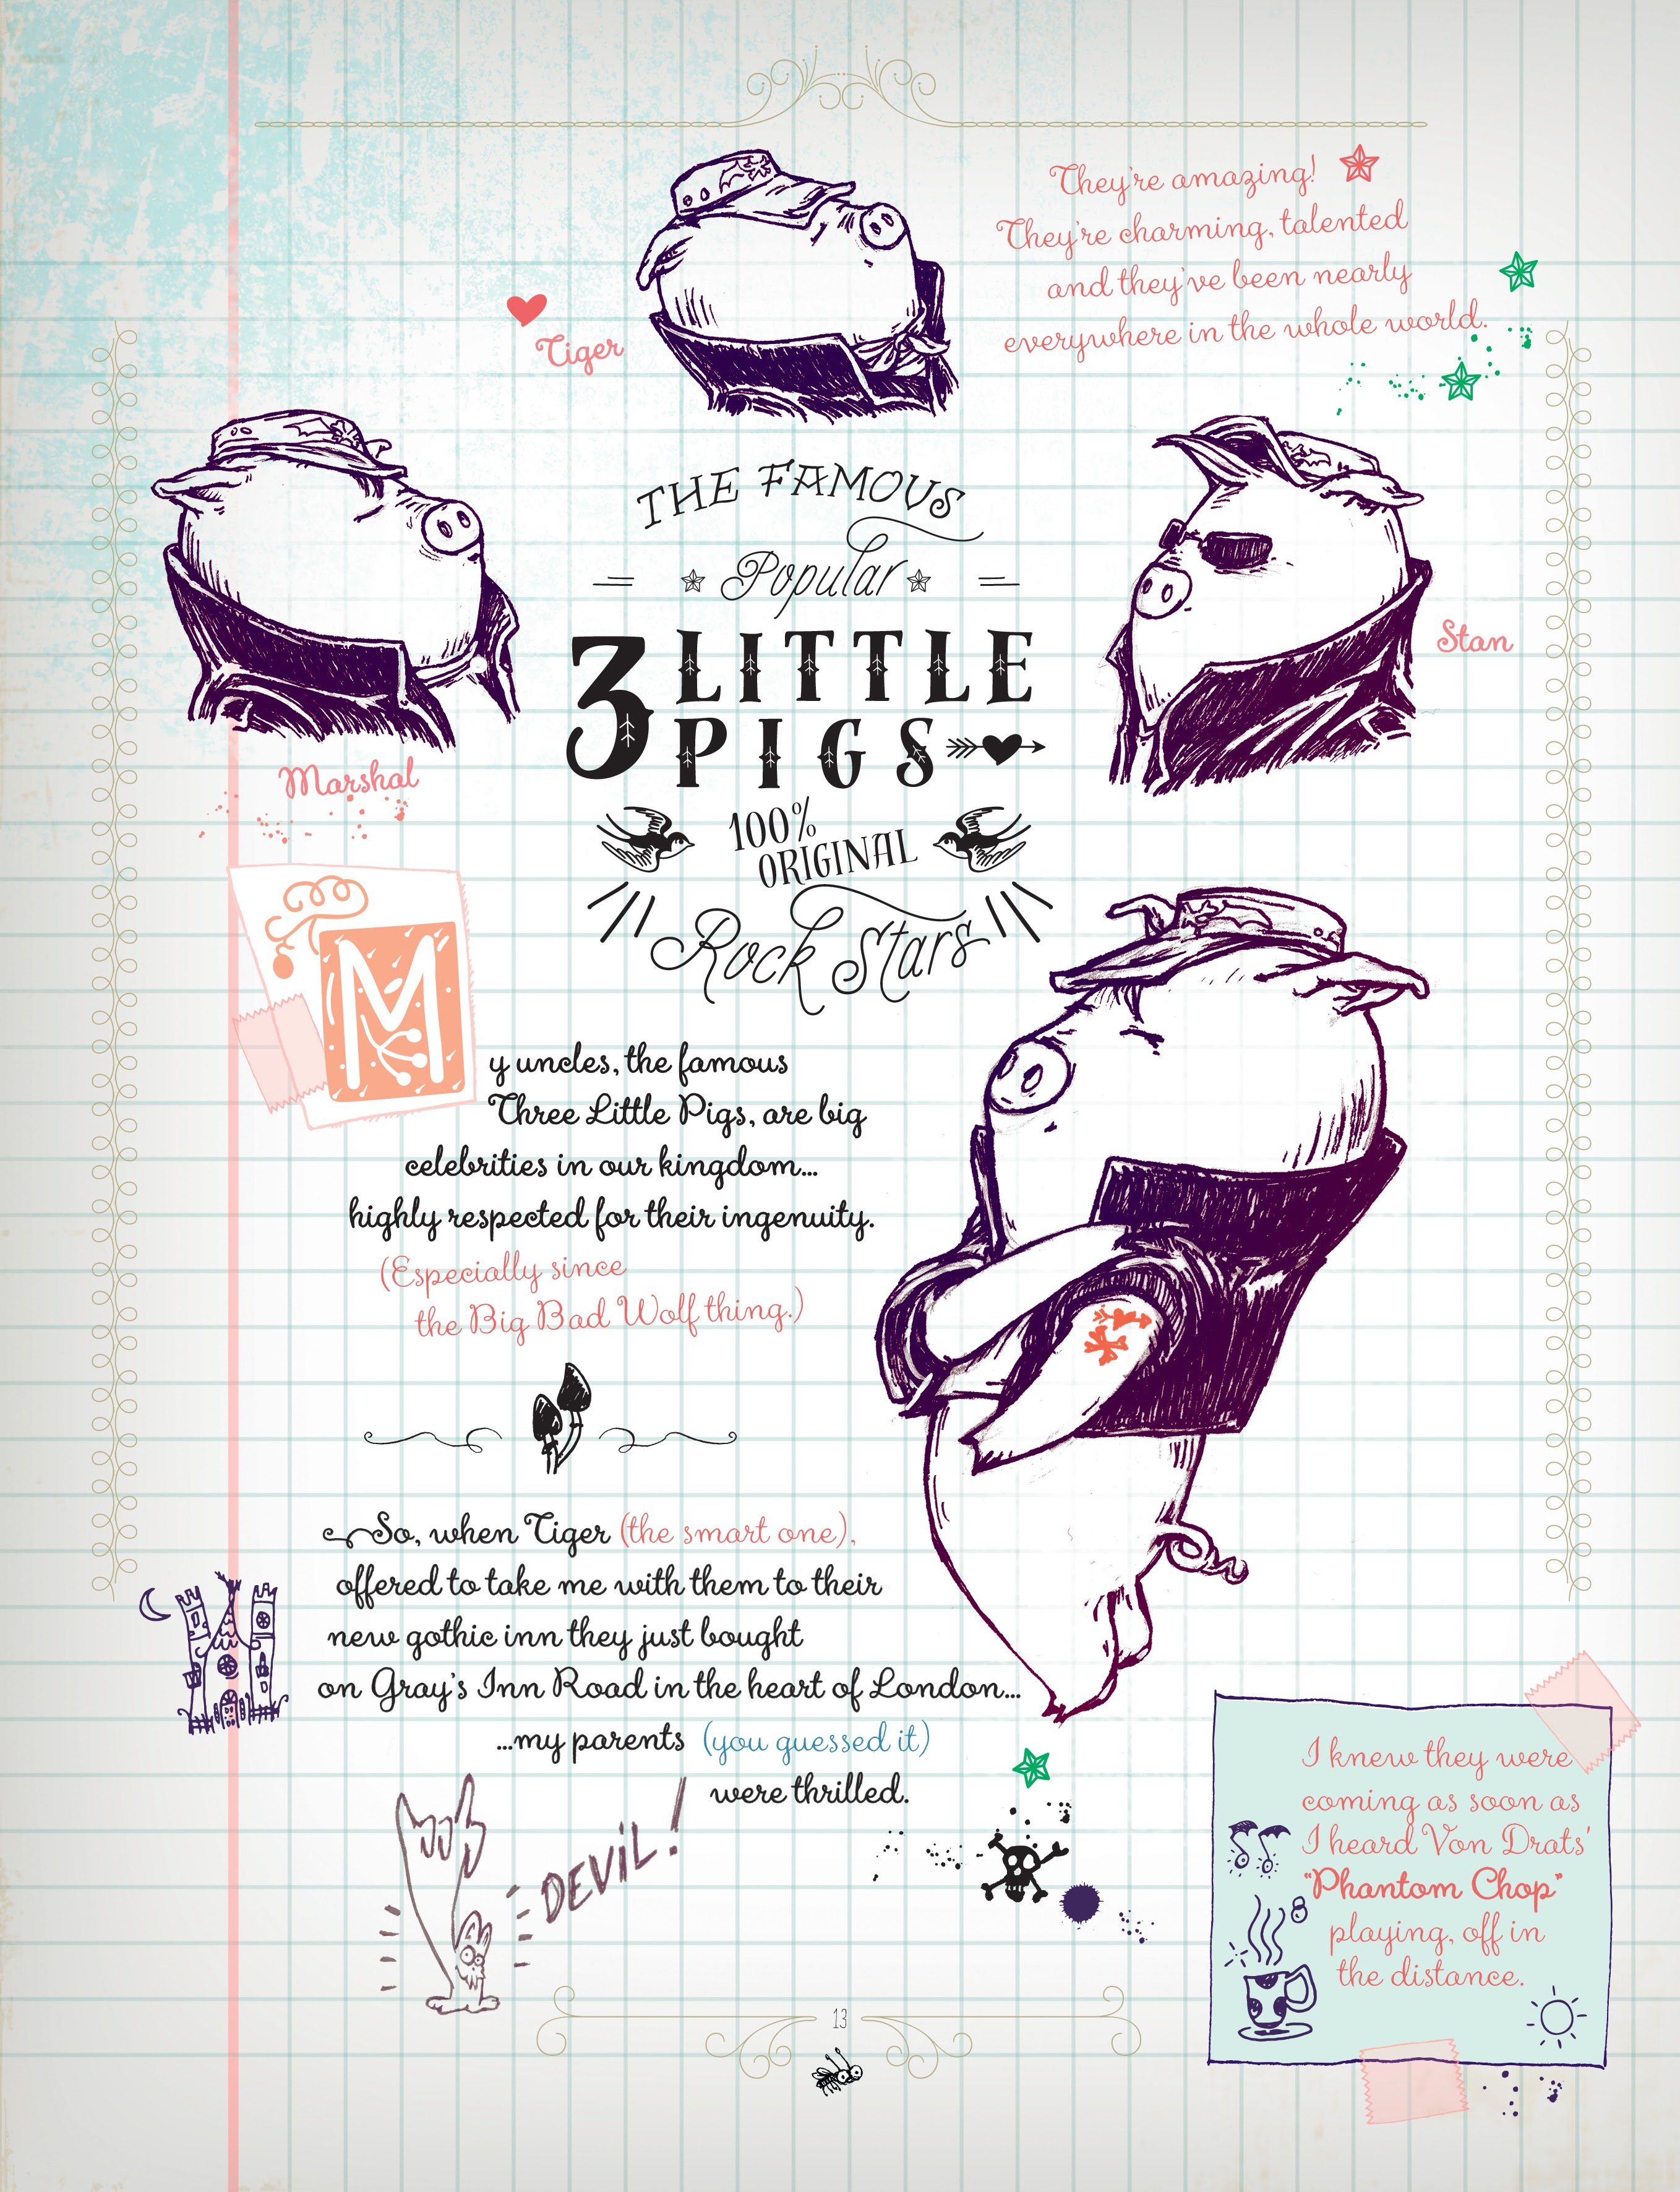 They're amazing!
They're charming, talented
and they've been nearly
everywhere in the whole world.
Tiger
Marshal
Stan
THE FAMOUS
Popular
3 LITTLE
PIGS
100%
ORIGINAL
Rock Stars
My uncles, the famous
Three Little Pigs, are big
celebrities in our kingdom...
highly respected for their ingenuity.
(Especially since
the Big Bad Wolf thing.)
So, when Tiger (the smart one),
offered to take me with them to their
new gothic inn they just bought
on Gray's Inn Road in the heart of London...
...my parents (you guessed it)
were thrilled.
DEVIL!
I knew they were
coming as soon as
I heard Von Drats'
"Phantom Chop"
playing, off in
the distance.
13